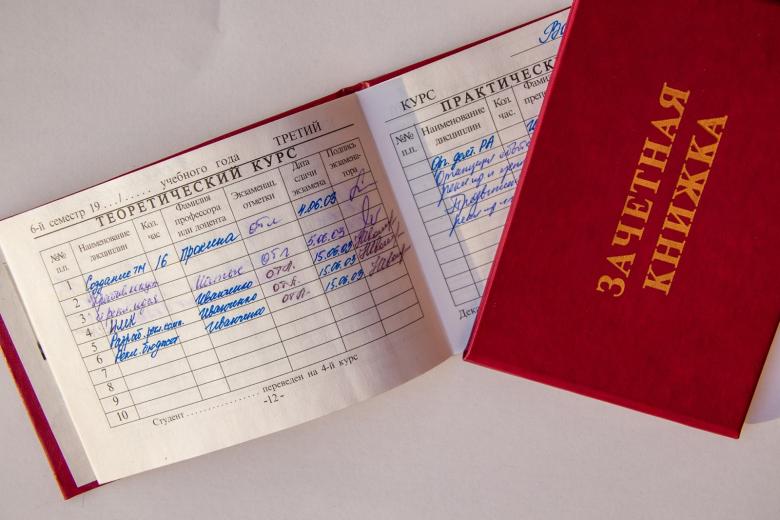 6-й семестр 19.../..... учебного года ТРЕТИЙ
ТЕОРЕТИЧЕСКИЙ КУРС
№№ п.п.
Наименование дисциплин
Кол. час
Фамилия профессора или доцента
Экзаменац. отметки
Дата сдачи экзамена
Подпись экзамена- тора
1 Создание ТМ 16 Пронина отл 4.06.03
2 отл 5.06.03
3 Иванченко отл. 15.06.03
4 НМК Иванченко отл. 15.06.03
5 Разраб. рек. камп. Иванченко отл. 15.06.03
6 Рекл. бюджет
7
8
9
10
Студент .................. переведен на 4-й курс
-12-
КУРС
ПРАКТИЧЕСК
№№ п.п.
Наименование дисциплин
Кол. час.
Фами
преп
РА
Дек
ЗАЧЕТНАЯ
КНИЖКА